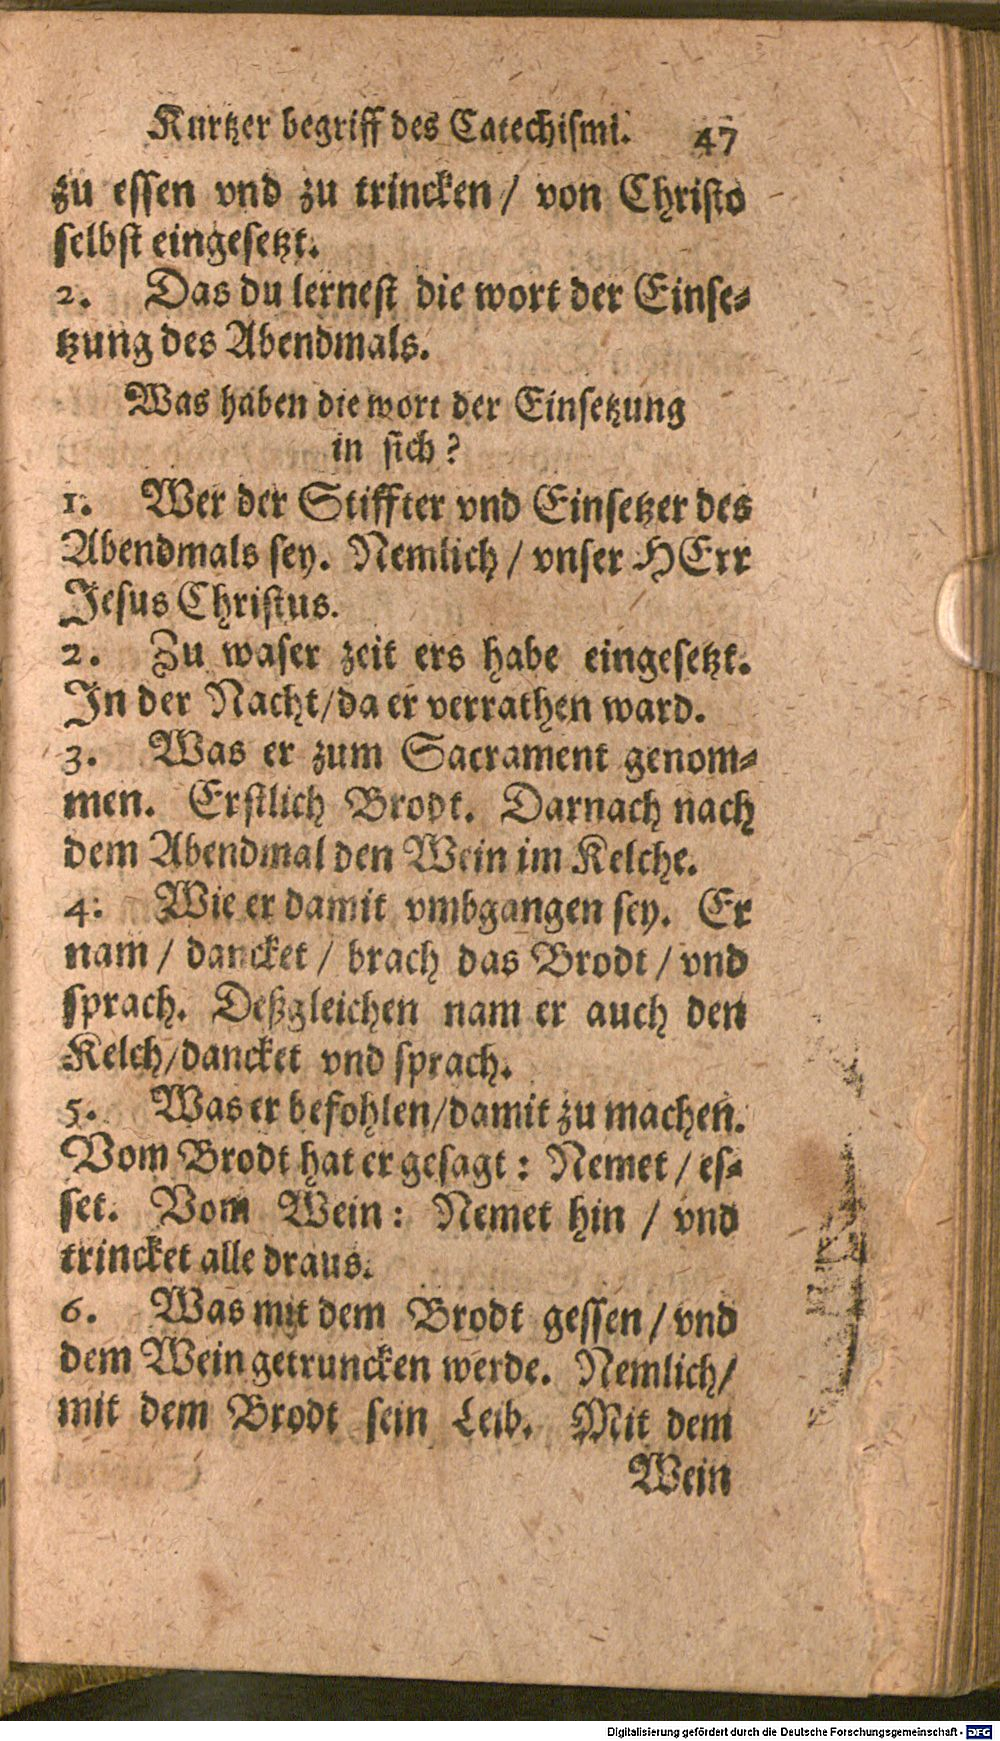 Kurtzer begriff des Catechismi. 47
zu essen vnd zu trincken / von Christo
selbst eingesetzt.
2. Das du lernest die wort der Einse-
tzung des Abendmals.
Was haben die wort der Einsetzung
in sich?
1. Wer der Stiffter vnd Einsetzer des
Abendmals sey. Nemlich / vnser HErr
Jesus Christus.
2. Zu waser zeit ers habe eingesetzt.
In der Nacht/da er verrathen ward.
3. Was er zum Sacrament genom-
men. Erstlich Brodt. Darnach nach
dem Abendmal den Wein im Kelche.
4. Wie er damit vmbgangen sey. Er
nam / dancket / brach das Brodt / vnd
sprach. Deßgleichen nam er auch den
Kelch/dancket vnd sprach.
5. Was er befohlen/damit zu machen.
Vom Brodt hat er gesagt: Nemet / es-
set. Vom Wein: Nemet hin / vnd
trincket alle draus.
6. Was mit dem Brodt gessen / vnd
dem Wein getruncken werde. Nemlich/
mit dem Brodt sein Leib. Mit dem
Wein
Digitalisierung gefördert durch die Deutsche Forschungsgemeinschaft - DFG